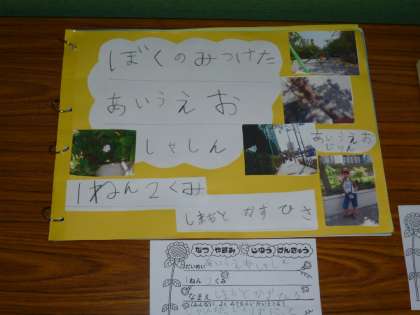 ぼくのみつけた
あいうえお
しゃしん
あいうえお
じゅん
1ねん2くみ
しまもと かずひさ
なつやすみ じゆうけんきゅう
だいめい
ねん くみ
なまえ